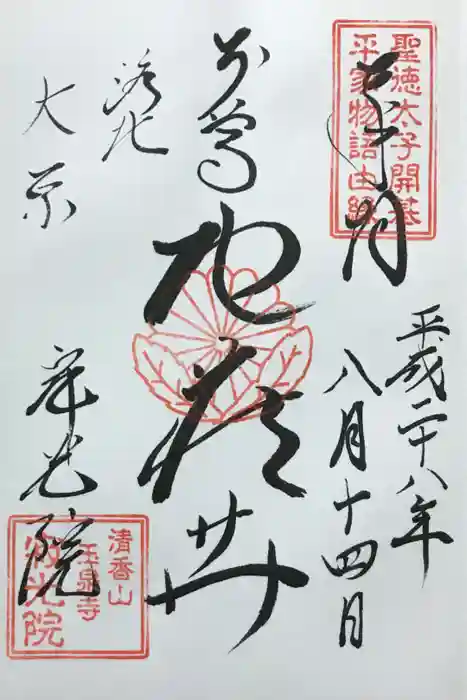 奉拝
聖徳太子開基
平家物語由縁
平成二十八年
八月十四日
本尊
地蔵𦬇
洛北
大原
寂光院
清香山
玉泉寺
寂光院